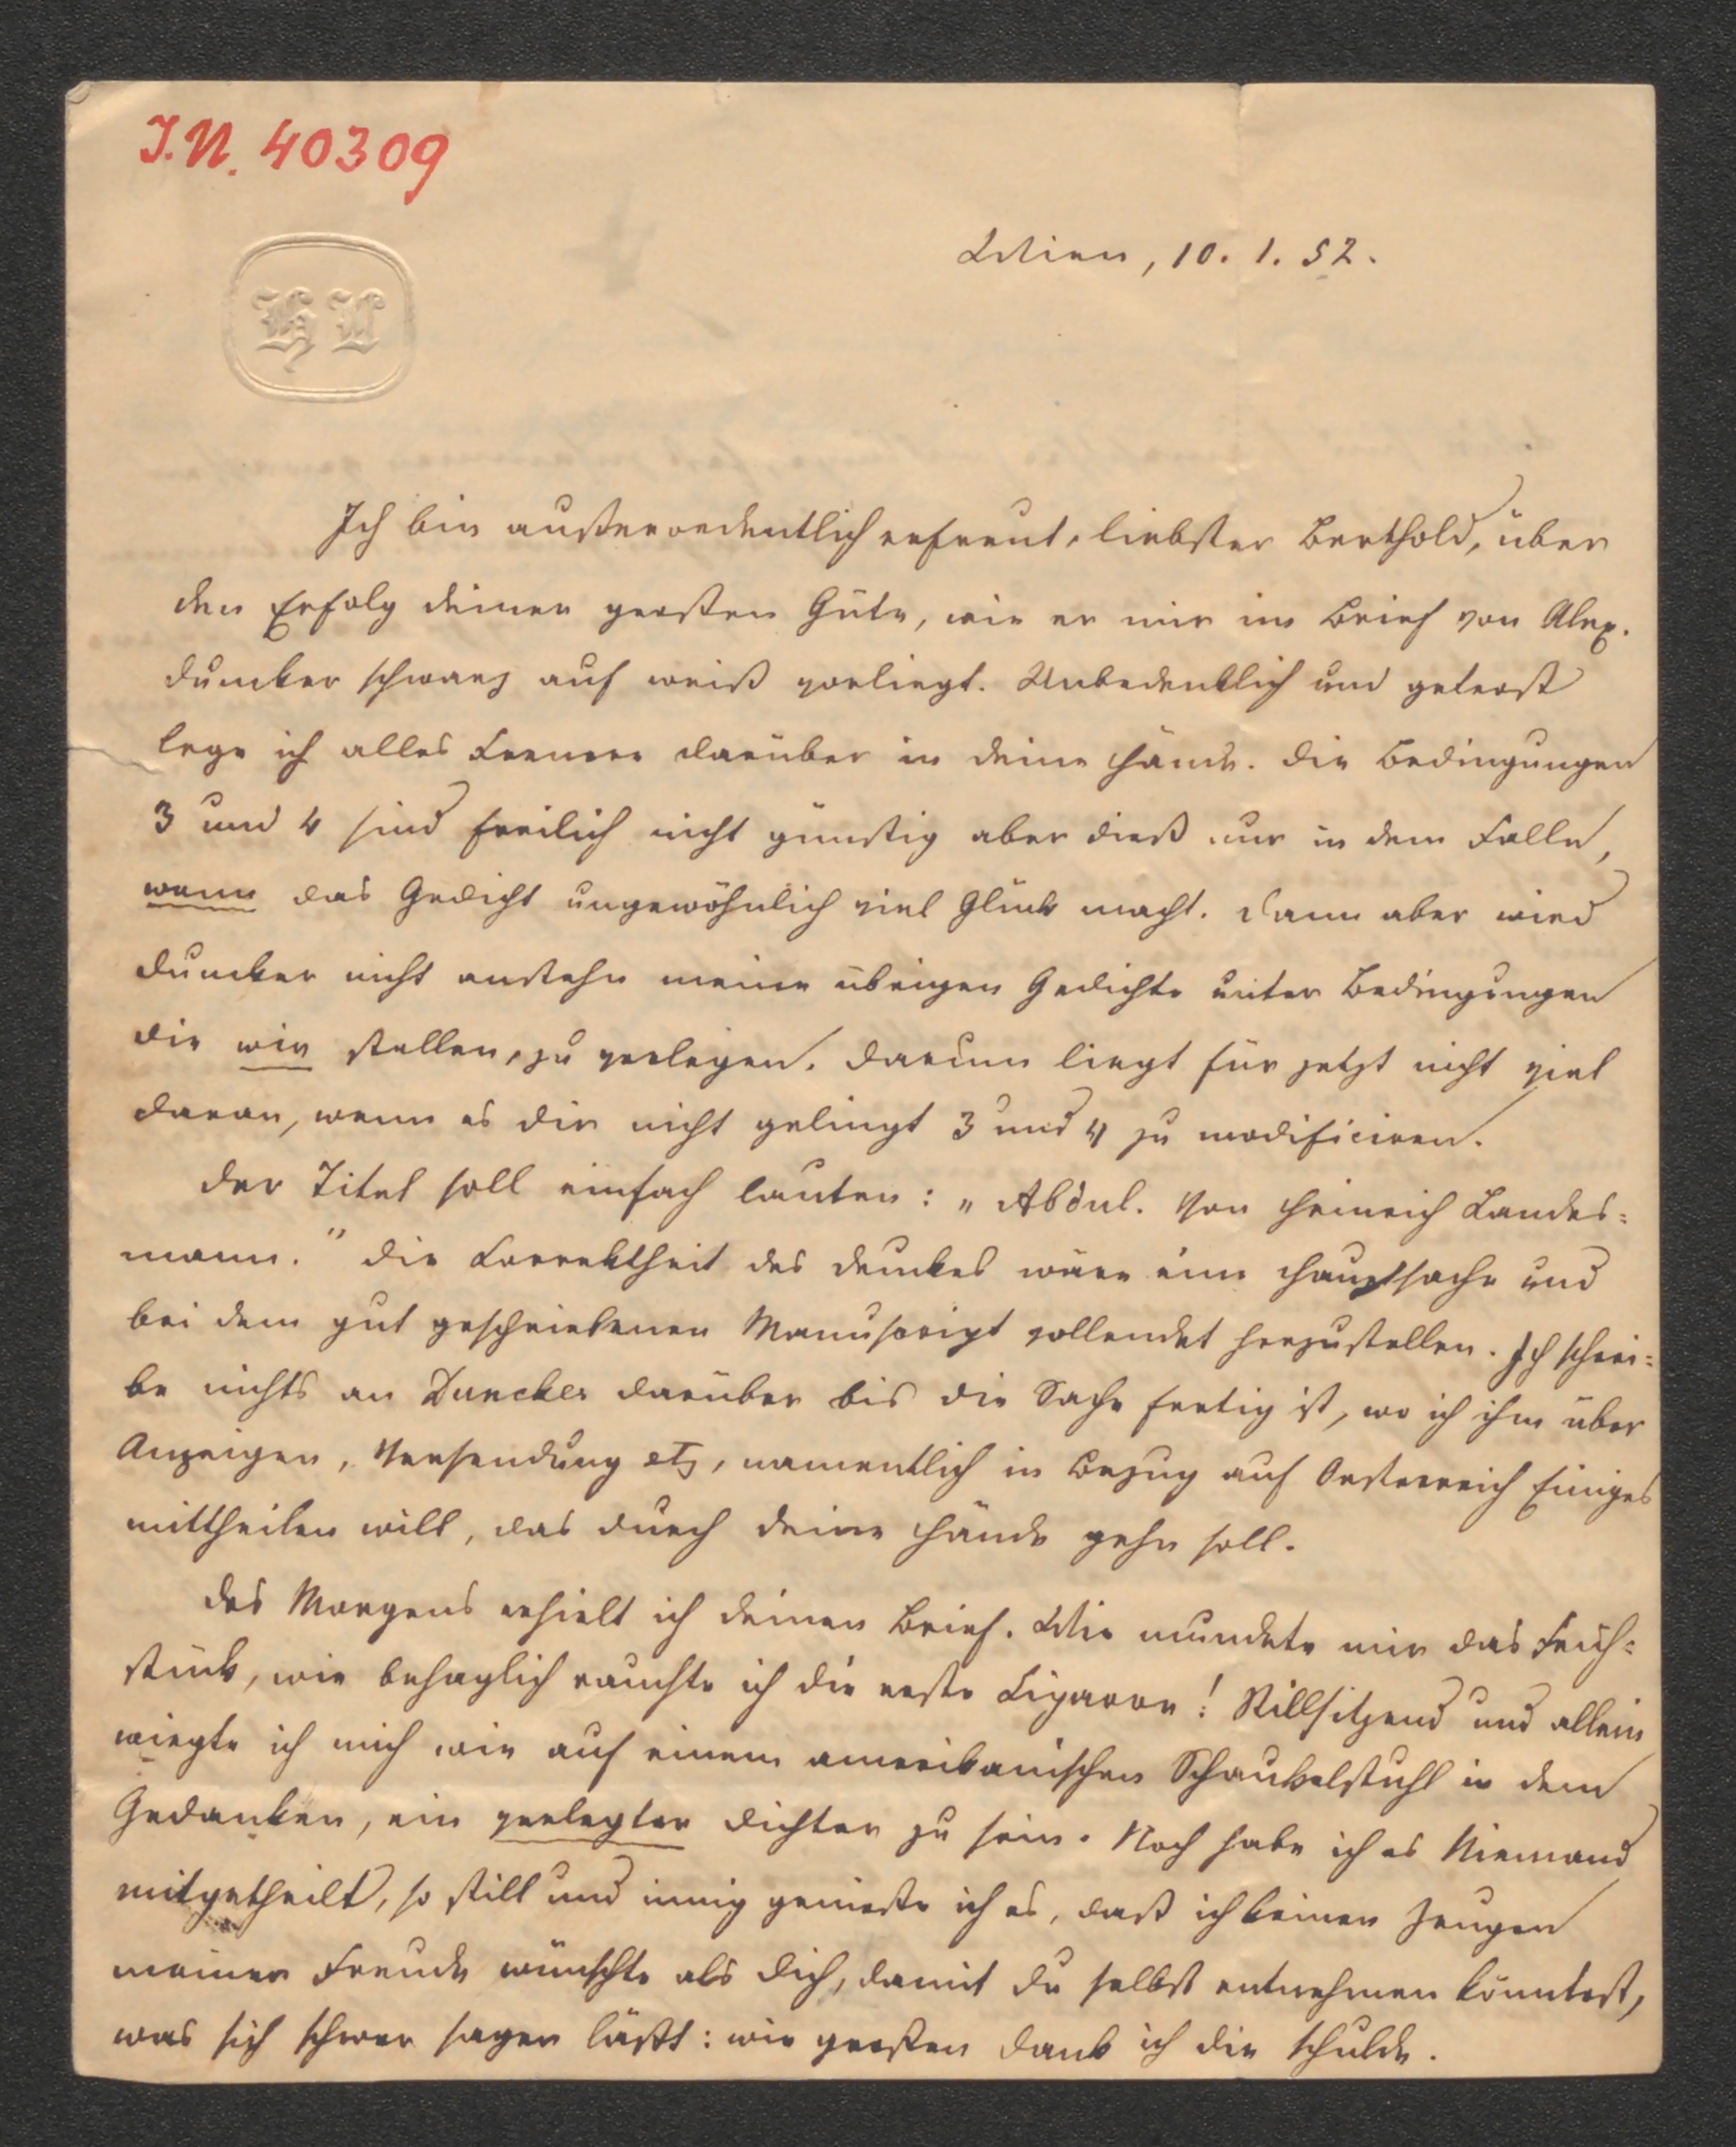 I.N. 40309
Wien, 10. 1. 52.
HL
Ich bin außerordentlich erfreut, liebster Berthold, über
den Erfolg deiner großen Güte, wie er mir im Brief von Alex.
Duncker schwarz auf weiß vorliegt. Unbedenklich und getrost
lege ich alles Fernere darüber in deine Hände. Die Bedingungen
3 und 4 sind freilich nicht günstig aber dieß nur in dem Falle,
wenn das Gedicht ungewöhnlich viel Glück macht. Dann aber wird
Duncker nicht anstehn meine übrigen Gedichte unter Bedingungen
die wir stellen, zu verlegen. Darum liegt für jetzt nicht viel
daran, wenn es dir nicht gelingt 3 und 4 zu modificiren.
Der Titel soll einfach lauten: „Abdul. Von Heinrich Landes=
mann." Die Correktheit des Druckes wäre eine Hauptsache und
bei dem gut geschriebenen Manuscript vollendet herzustellen. Ich schrei=
be nichts an Duncker darüber bis die Sache fertig ist, wo ich ihm über
Anzeigen, Versendung etz, namentlich in Bezug auf Oesterreich Einiges
mittheilen will, das durch deine Hände gehn soll.
Des Morgens erhielt ich deinen Brief. Wie mundete mir das Früh=
stück, wie behaglich rauchte ich die erste Cigarre! Stillsitzend und allein
wiegte ich mich wie auf einem amerikanischen Schaukelstuhl in dem
Gedanken, ein verlegter Dichter zu sein. Noch habe ich es Niemand
mitgetheilt, so still und innig genieße ich es, daß ich keinen Zeugen
meiner Freude wünschte als dich, damit du selbst entnehmen könntest,
was sich schwer sagen läßt: wie großen Dank ich dir schulde.